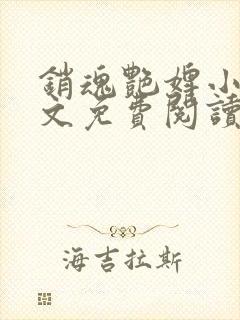 銷魂艷婢小
文免費閱讀
海吉拉斯